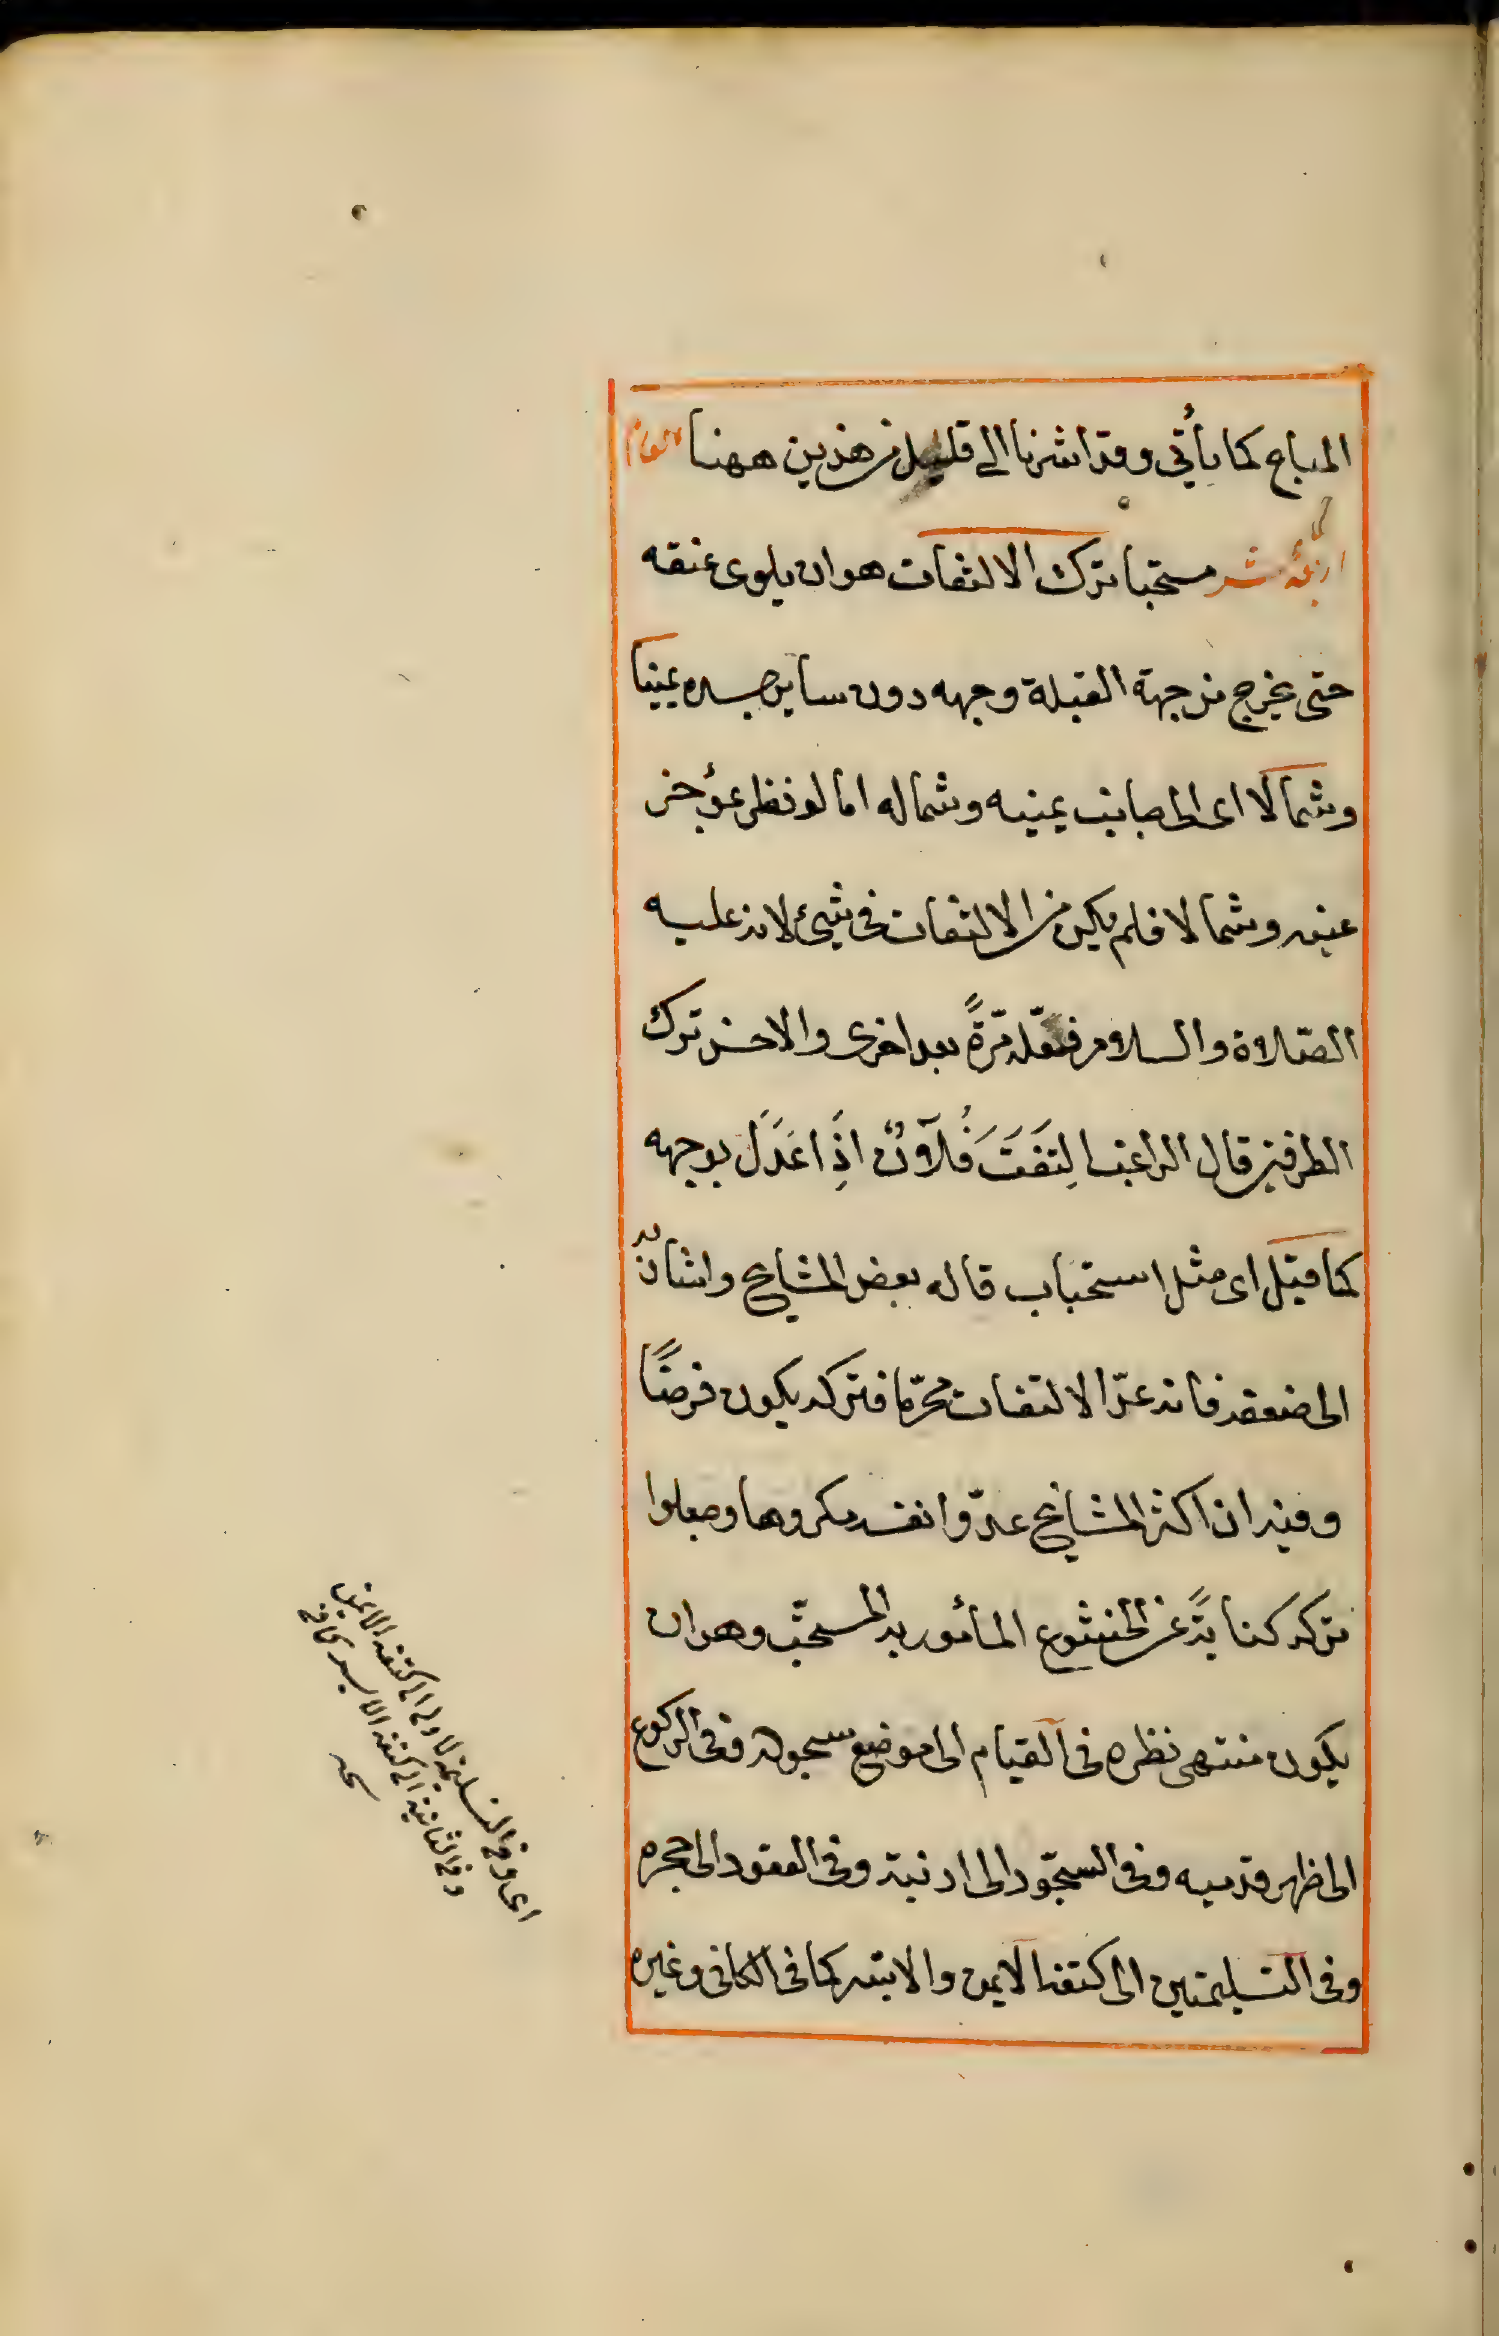 المباح كما يأتى وقد اشرنا الى قليل من هذين ههنا
اربعة عشر مستحبا ترك الالتفات هو ان يلوى عنقه
حتى يخرج من جهة القبلة وجهه دون ساير جسده يمينا
وشمالا اى الى جانب يمينه وشماله اما لو نظر بمؤخر
عينه وشمالا فلم يكن من الالتفات فى شيئ لانه عليه
الصّلاة والسلام فعله مرّةً بعد اخرى والاخر ترك
الطرفين قال الراغب التفَتَ فُلَانٌ اِذَا عَدَلَ بوجهه
كذا قيل اى مثل استحباب قاله بعض المشايخ واشار به
الى ضعفه فانه عدّ الالتفات محرّما فتركه يكون فرضًا
وفيه ان اكثر المشايخ عدّوا نفسه مكروها وجعلوا
تركه كنايةً عن الخشوع المأمور به المستحبّ وهو ان
يكون منتهى نظره فى القيام الى موضع سجوده وفى الركوع
الى ظهر قدميه وفى السجّود الى ارنبته وفى القعود الى حجره
وفى التسليمتين الى كتفه الايمن والايسر كما فى الكافى وغيره
اى وفى التسليمة الاولى الى كتفه الايمن
وفى الثانية الى كتفه الايسر كافى